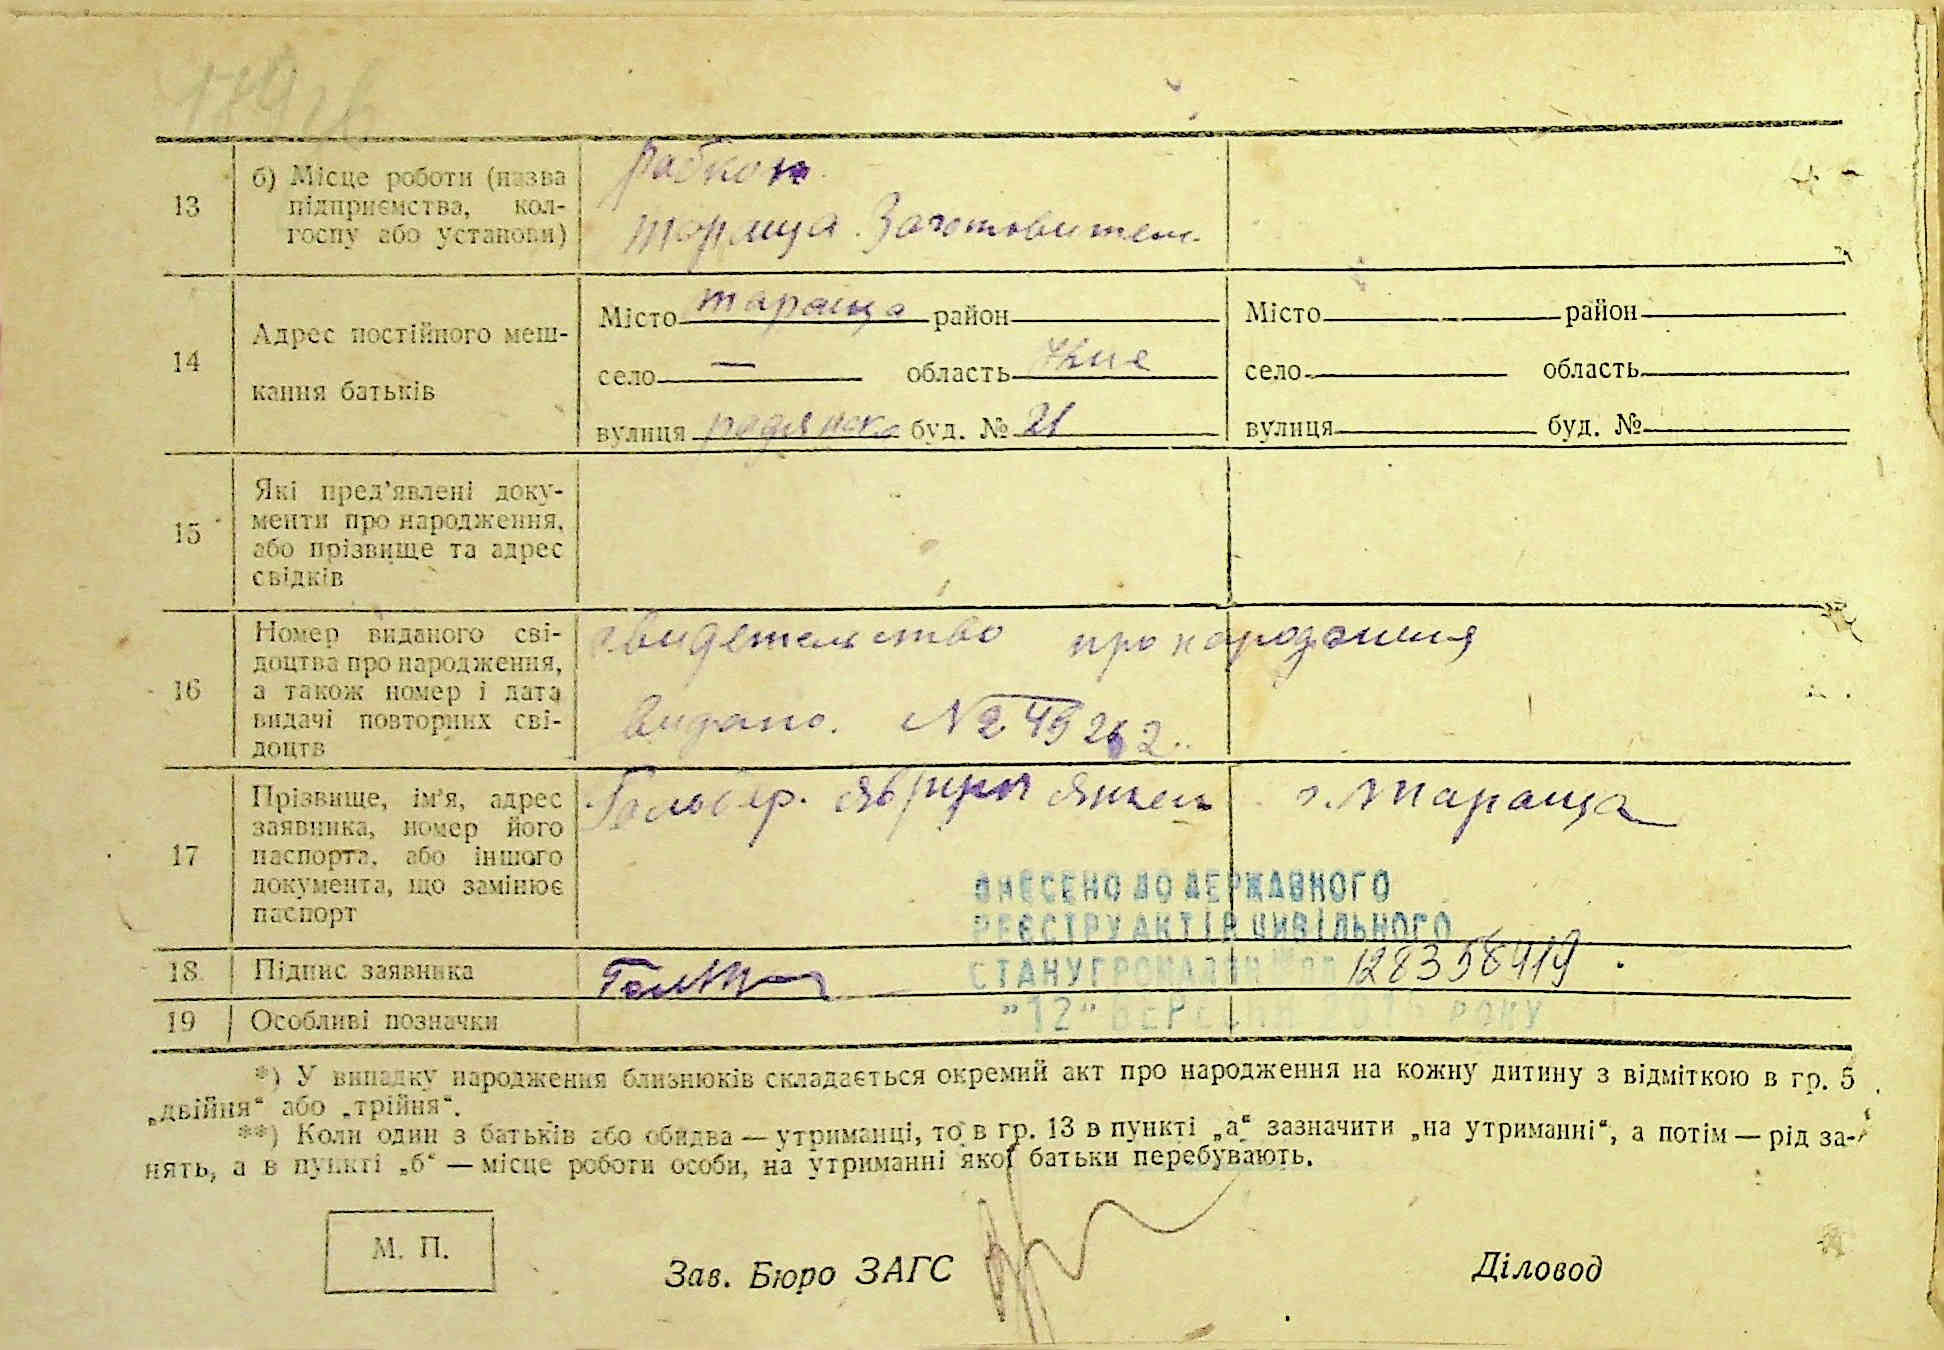 13
б) Місце роботи (назва
підприємства, кол-
госпу або установи)
Рабкоп
Тараща. Заготовитель
14
Адрес постійного меш-
кання батьків
Місто тараща район
село — область Кие
вулиця радянска буд. № 21
Місто район
село область
вулиця буд. №
15
Які пред'явлені доку-
менти про народження,
або прізвище та адрес
свідків
16
Номер виданого сві-
доцтва про народження,
а також номер і дата
видачі повторних сві-
доцтв
свидетельство про народження
видано. №
17
Прізвище, ім'я, адрес
заявника, номер його
паспорта, або іншого
документа, що замінює
паспорт
г. Тараща
ВНЕСЕНО ДО ДЕРЖАВНОГО
РЕЄСТРУ АКТІВ ЦИВІЛЬНОГО
СТАНУ ГРОМАДЯН 128358419
18
Підпис заявника
"12" БЕРЕЗНЯ РОКУ
19
Особливі позначки
*) У випадку народження близнюків складається окремий акт про народження на кожну дитину з відміткою в гр. 5
„двійня“ або „трійня“.
**) Коли один з батьків або обидва — утриманці, то в гр. 13 в пункті „а“ зазначити „на утриманні“, а потім — рід за-
нять, а в пункті „б“ — місце роботи особи, на утриманні якої батьки перебувають.
М. П.
Зав. Бюро ЗАГС
Діловод